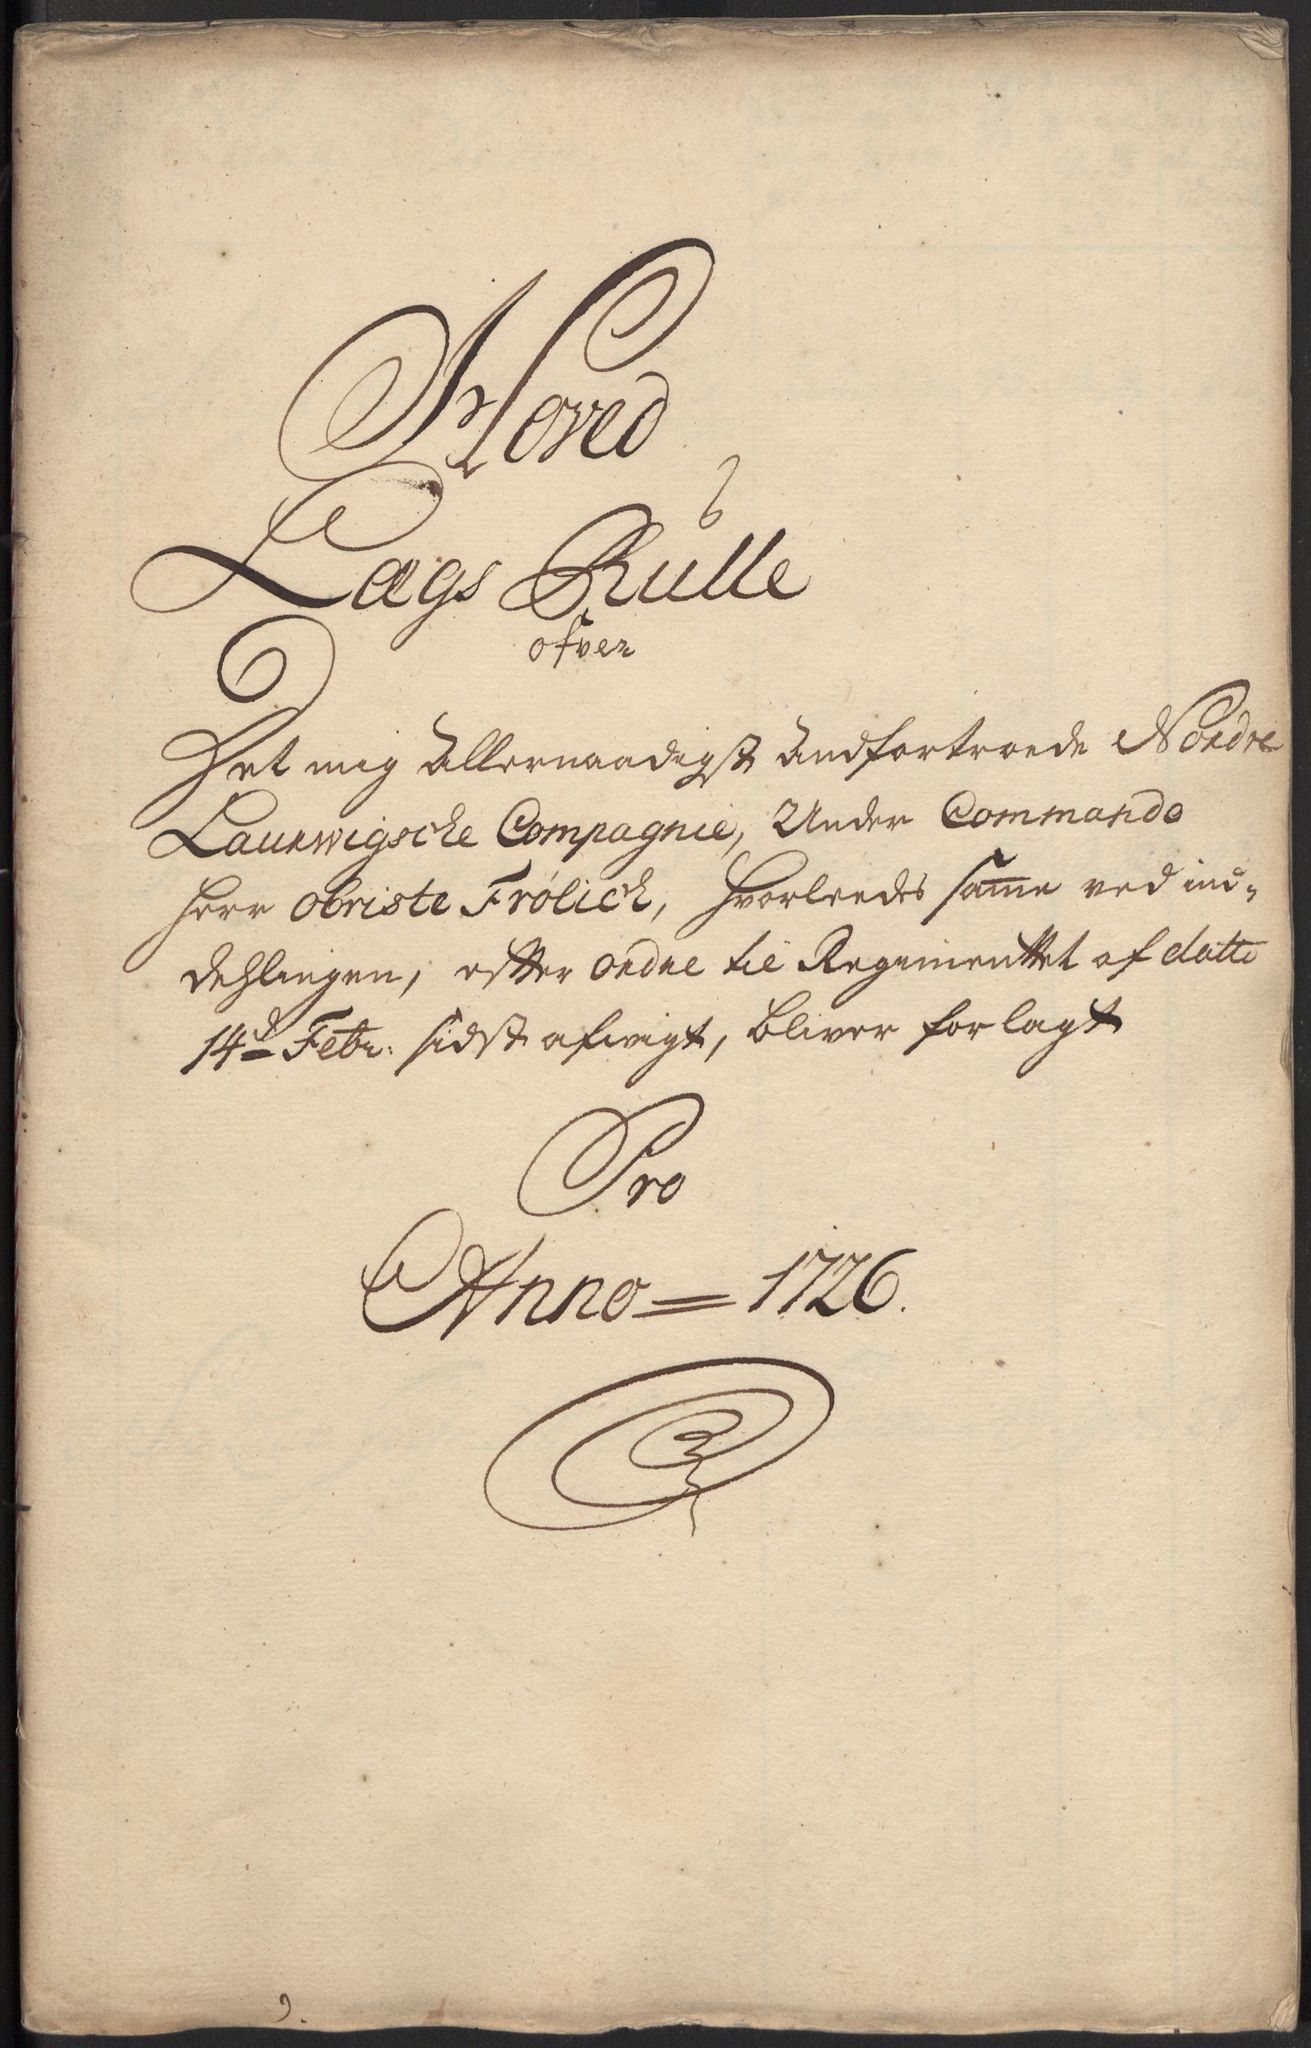 Hoved
Lægs Rulle
ofver
Det mig Allernaadigst Andfortroede Nordre
Laurwigsche Compagnie, Under Commando
Herr Obriste Frölich, hvorleedes samme ved ind=
dehlingen, efter ordre til Regimenttet af datto
14d Febr: sidst afvigt, bliver forlagt
Pro
Anno = 1726.